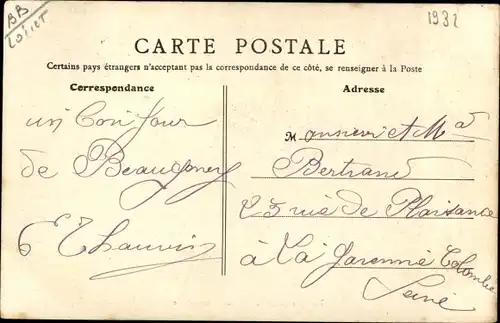 BB
LOIRET
1932
CARTE POSTALE
Certains pays étrangers n'acceptant pas la correspondance de ce côté, se renseigner à la Poste
Correspondance
Adresse
un Bonjour
de Beaugency
Thauvin
Monsieur et Md
Bertrand
25 rue de Plaisance
à La Garenne Colombe
Seine